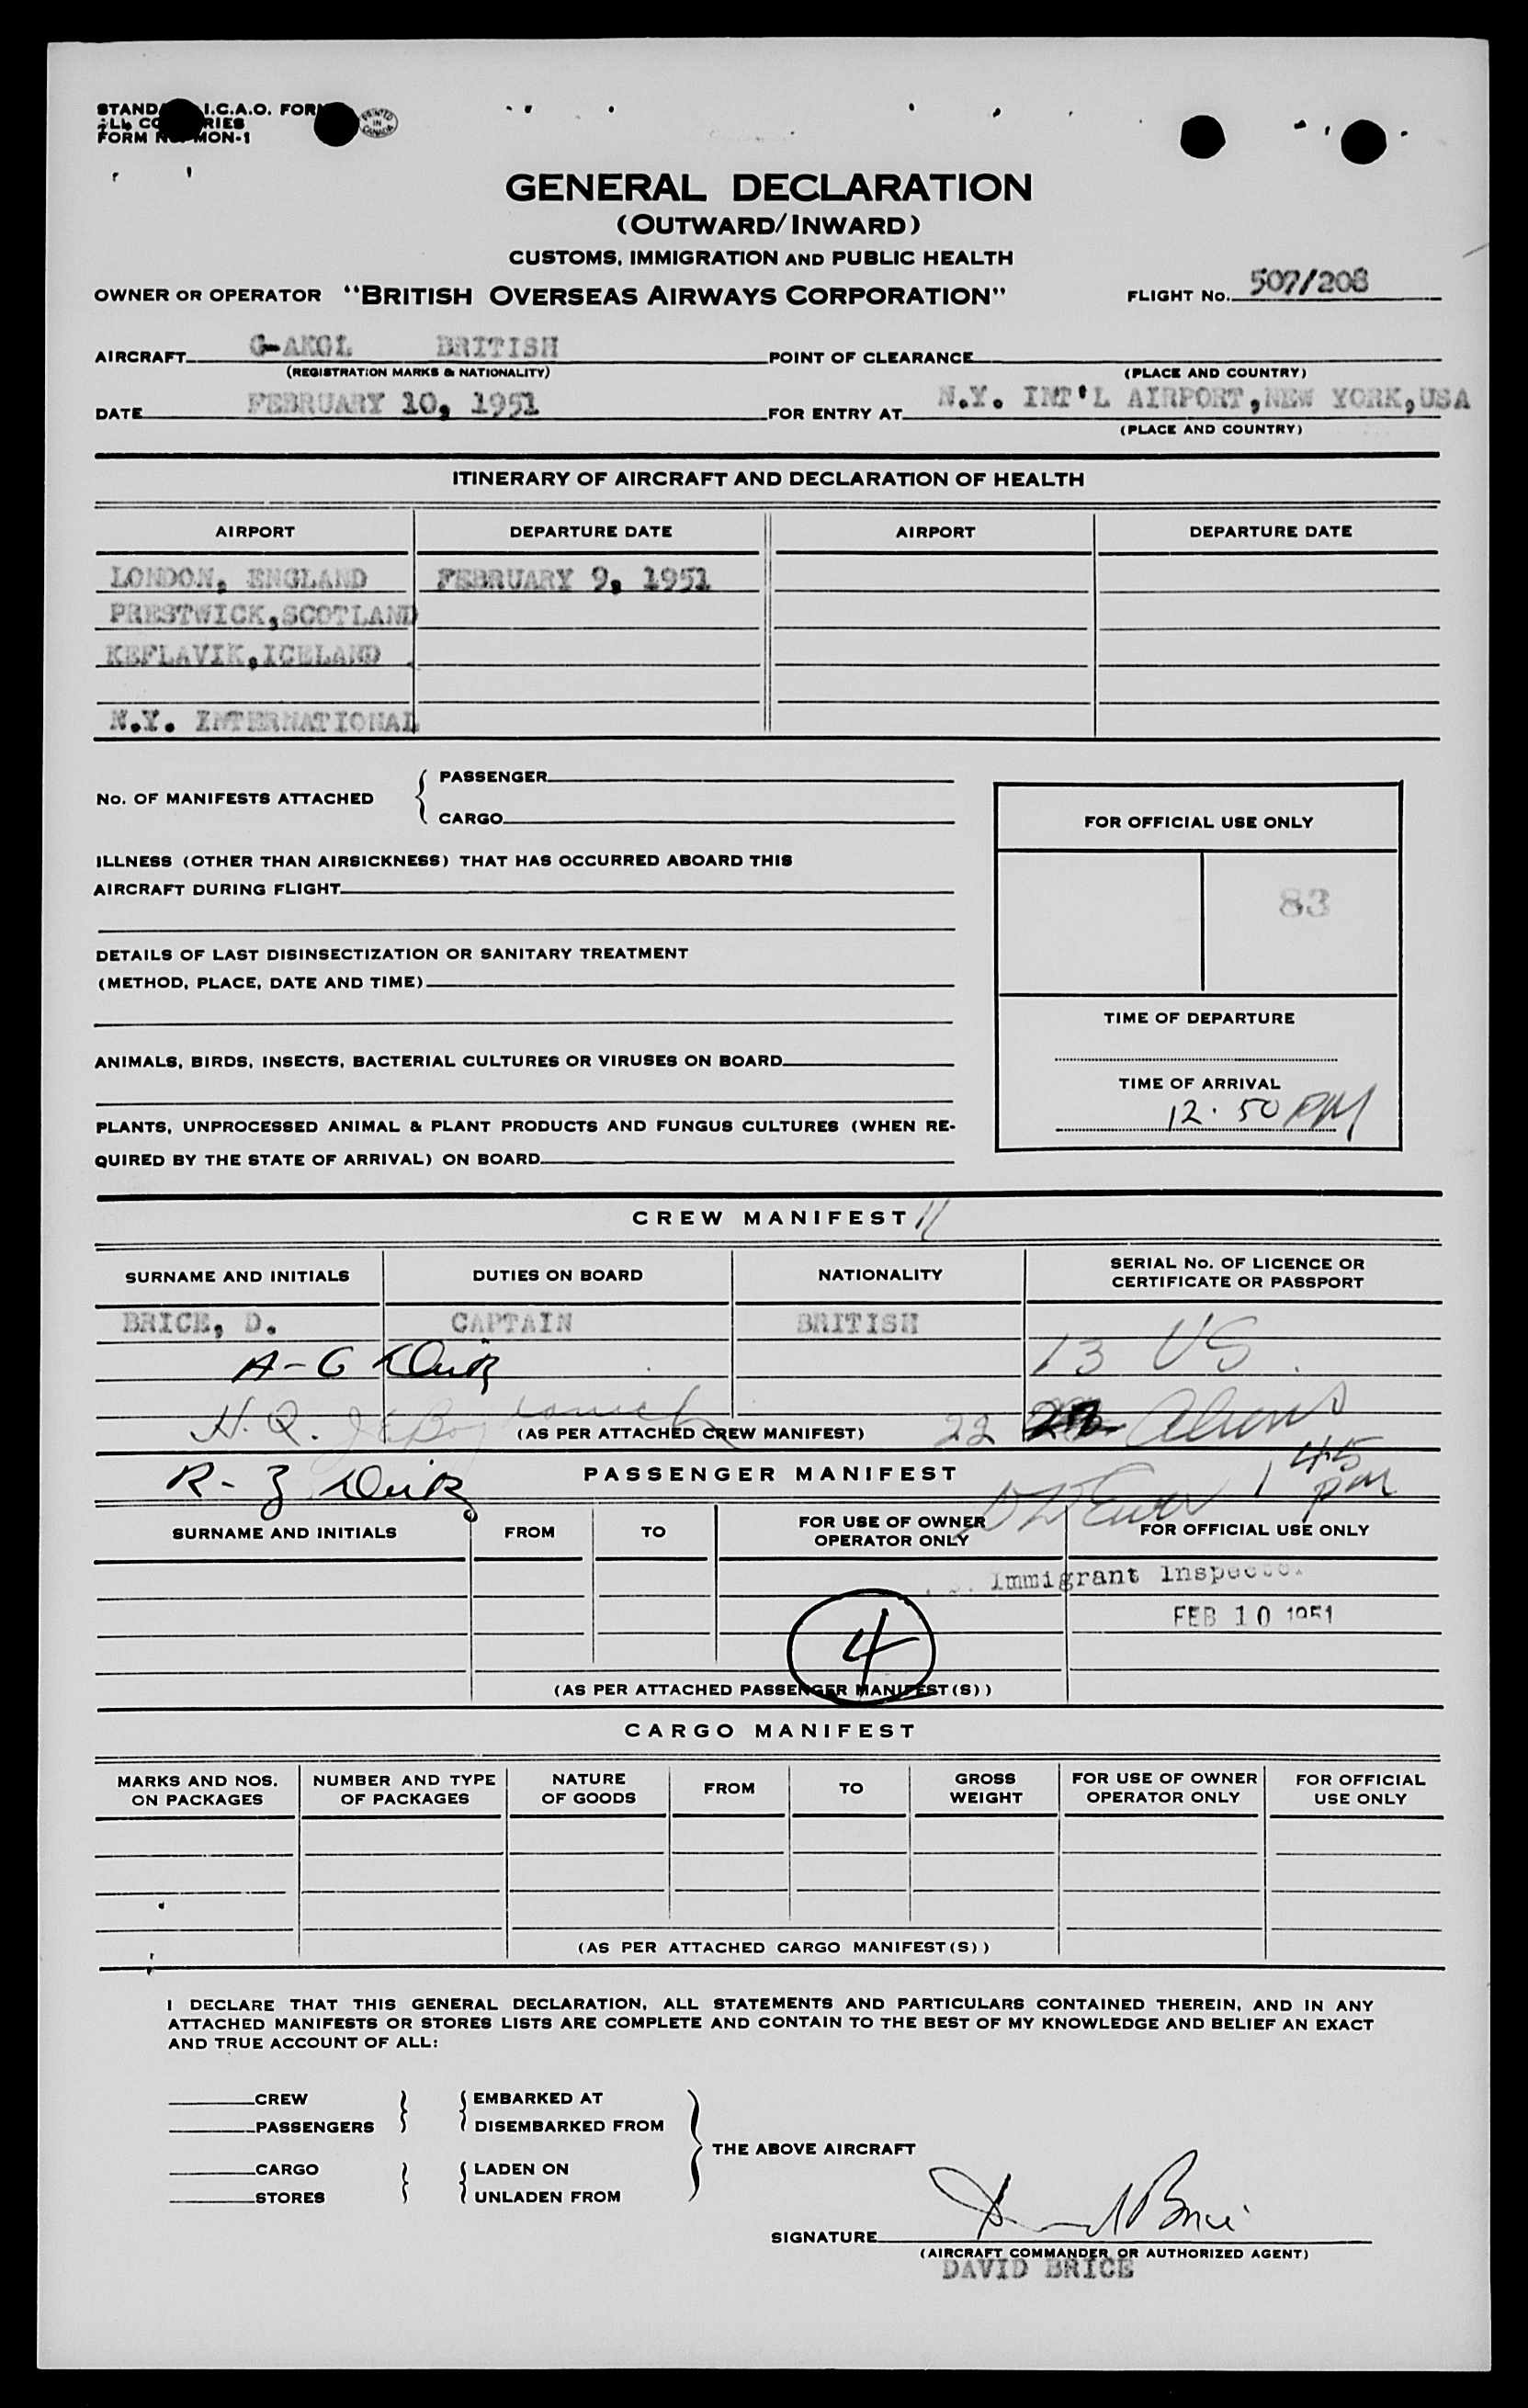 STAND I.C.A.O. FOR
ALL CO RIES
FORM No. MON-1
PRINTED IN CANADA
GENERAL DECLARATION
(OUTWARD/INWARD)
CUSTOMS, IMMIGRATION AND PUBLIC HEALTH
OWNER OR OPERATOR "BRITISH OVERSEAS AIRWAYS CORPORATION" FLIGHT No. 507/208
AIRCRAFT G-AKGL BRITISH POINT OF CLEARANCE
(REGISTRATION MARKS & NATIONALITY) (PLACE AND COUNTRY)
DATE FEBRUARY 10, 1951 FOR ENTRY AT N.Y. INT'L AIRPORT, NEW YORK, USA
(PLACE AND COUNTRY)
ITINERARY OF AIRCRAFT AND DECLARATION OF HEALTH
AIRPORT DEPARTURE DATE AIRPORT DEPARTURE DATE
LONDON, ENGLAND FEBRUARY 9, 1951
PRESTWICK, SCOTLAND
KEFLAVIK, ICELAND
N.Y. INTERNATIONAL
No. OF MANIFESTS ATTACHED
PASSENGER
CARGO
ILLNESS (OTHER THAN AIRSICKNESS) THAT HAS OCCURRED ABOARD THIS
AIRCRAFT DURING FLIGHT
DETAILS OF LAST DISINSECTIZATION OR SANITARY TREATMENT
(METHOD, PLACE, DATE AND TIME)
ANIMALS, BIRDS, INSECTS, BACTERIAL CULTURES OR VIRUSES ON BOARD
PLANTS, UNPROCESSED ANIMAL & PLANT PRODUCTS AND FUNGUS CULTURES (WHEN RE-
QUIRED BY THE STATE OF ARRIVAL) ON BOARD
FOR OFFICIAL USE ONLY
83
TIME OF DEPARTURE
TIME OF ARRIVAL
12.50 PM
CREW MANIFEST 11
SURNAME AND INITIALS DUTIES ON BOARD NATIONALITY SERIAL No. OF LICENCE OR
CERTIFICATE OR PASSPORT
BRICE, D. CAPTAIN BRITISH
A-G 13 US
H.Q. (AS PER ATTACHED CREW MANIFEST) 22 Aliens
R-Z PASSENGER MANIFEST 1 45 pm
SURNAME AND INITIALS FROM TO FOR USE OF OWNER
OPERATOR ONLY FOR OFFICIAL USE ONLY
Immigrant Inspector
FEB 10 1951
4
(AS PER ATTACHED PASSENGER MANIFEST(S))
CARGO MANIFEST
MARKS AND NOS.
ON PACKAGES NUMBER AND TYPE
OF PACKAGES NATURE
OF GOODS FROM TO GROSS
WEIGHT FOR USE OF OWNER
OPERATOR ONLY FOR OFFICIAL
USE ONLY
(AS PER ATTACHED CARGO MANIFEST(S))
I DECLARE THAT THIS GENERAL DECLARATION, ALL STATEMENTS AND PARTICULARS CONTAINED THEREIN, AND IN ANY
ATTACHED MANIFESTS OR STORES LISTS ARE COMPLETE AND CONTAIN TO THE BEST OF MY KNOWLEDGE AND BELIEF AN EXACT
AND TRUE ACCOUNT OF ALL:
CREW EMBARKED AT
PASSENGERS DISEMBARKED FROM
THE ABOVE AIRCRAFT
CARGO LADEN ON
STORES UNLADEN FROM
SIGNATURE David Brice
(AIRCRAFT COMMANDER OR AUTHORIZED AGENT)
DAVID BRICE